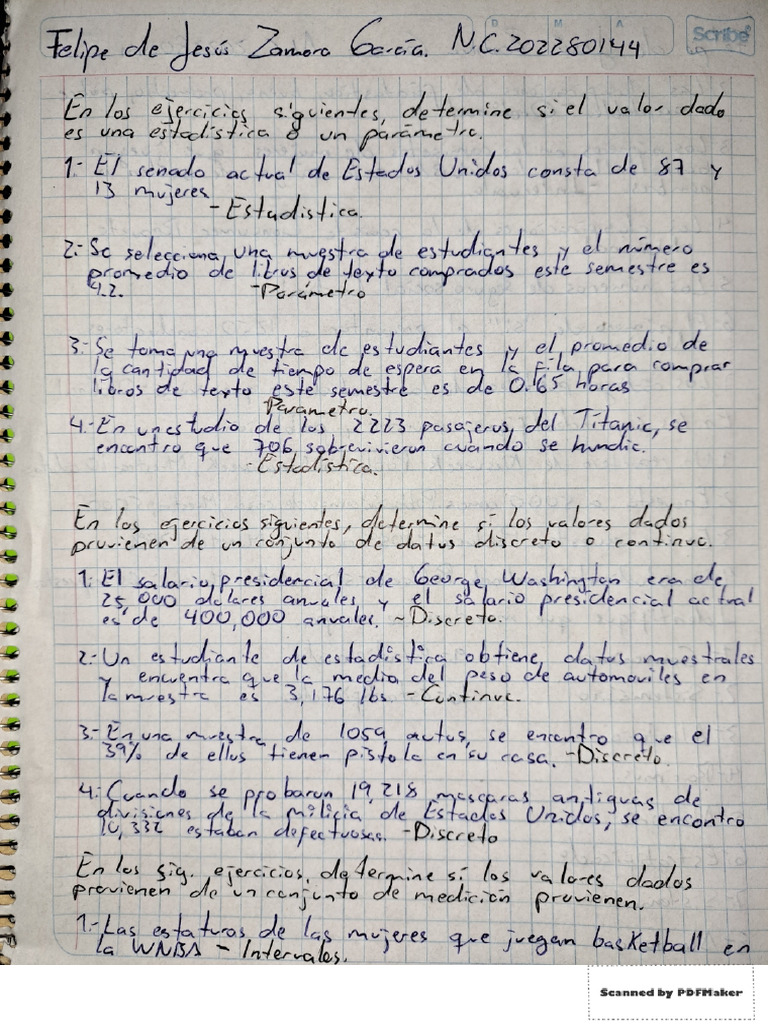 Scribe
Felipe de Jesús Zamora García. N.C. 202280144
En los ejercicios siguientes, determine si el valor dado
es una estadística o un parámetro.
1.- El senado actual de Estados Unidos consta de 87 y
13 mujeres
- Estadistica.
2.- Se selecciona una muestra de estudiantes y el número
promedio de libros de texto comprados este semestre es
4.2. - Parámetro
3.- Se toma una muestra de estudiantes y el promedio de
la cantidad de tiempo de espera en la fila para comprar
libros de texto este semestre es de 0.65 horas
Parametro.
4.- En un estudio de los 2223 pasajeros del Titanic, se
encontro que 706 sobrevivieron cuando se hundio.
- Estadística.
En los ejercicios siguientes, determine si los valores dados
provienen de un conjunto de datos discreto o continuo.
1. El salario presidencial de George Washington era de
25,000 dolares anuales y el salario presidencial actual
es de 400,000 anuales. - Discreto.
2.- Un estudiante de estadística obtiene datos muestrales
y encuentra que la media del peso de automoviles en
la muestra es 3,176 lbs. - Continuo.
3.- En una muestra de 1059 autos, se encontro que el
39% de ellos tienen pistola en su casa. - Discreto.
4. Cuando se probaron 19,218 mascaras antiguas de
divisiones de la milicia de Estados Unidos, se encontro
10,332 estaban defectuosas. - Discreto
En los sig. ejercicios, determine si los valores dados
provienen de un conjunto de medición provienen.
1.- Las estaturas de las mujeres que juegan basketball en
la WNBA - Intervalos.
Scanned by PDFMaker